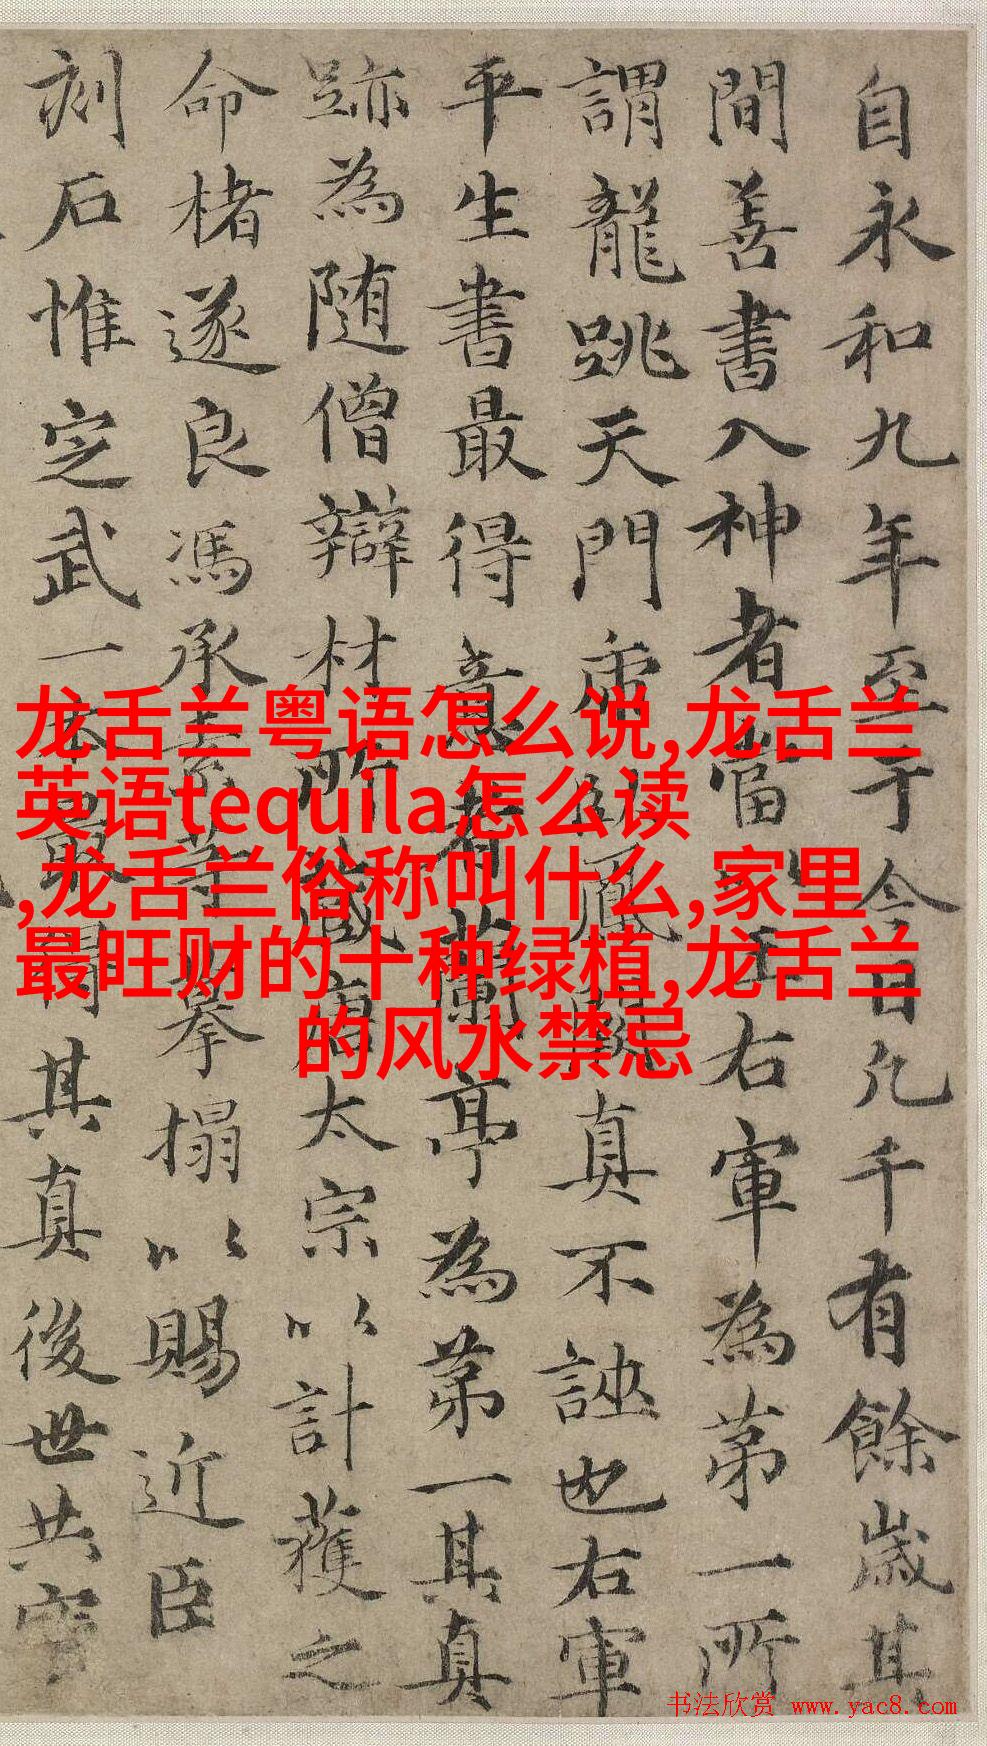 自永和九年至于今日凡千有餘歲其
間善書入神者當以王右軍為第一所
謂龍跳天門虎臥鳳閣真不誣也右軍
平生書最得意者蘭亭為第一其真
跡為随僧辯材所藏唐太宗以計獲之
命楮遂良馮承素等摹搨以賜近臣
刻石惟定武一本最得其真後世共寳
龙舌兰粤语怎么说,龙舌兰
英语tequila怎么读
,龙舌兰俗称叫什么,家里
最旺财的十种绿植,龙舌兰
的风水禁忌
书法欣赏 www.yac8.com